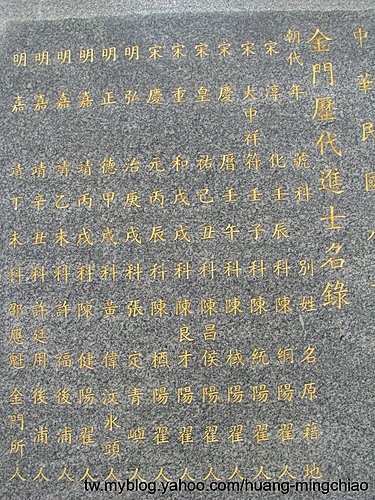 中華民國
金門歷代進士名錄
朝代年號科別姓名原籍地
宋淳化壬辰科陳綱陽翟人
宋大中祥符壬子科陳統陽翟人
宋慶曆壬午科陳棫陽翟人
宋皇祐己丑科陳昌侯陽翟人
宋重和戊戌科陳良才陽翟人
宋慶元丙辰科陳槱陽翟人
明弘治庚戌科張定青嶼人
明正德甲戌科黃偉汶水頭人
明嘉靖丙戌科陳健陽翟人
明嘉靖乙未科許福後浦人
明嘉靖辛丑科許廷用後浦人
明嘉靖丁未科邵應魁金門所人
tw.myblog.yahoo.com/huang-mingchiao